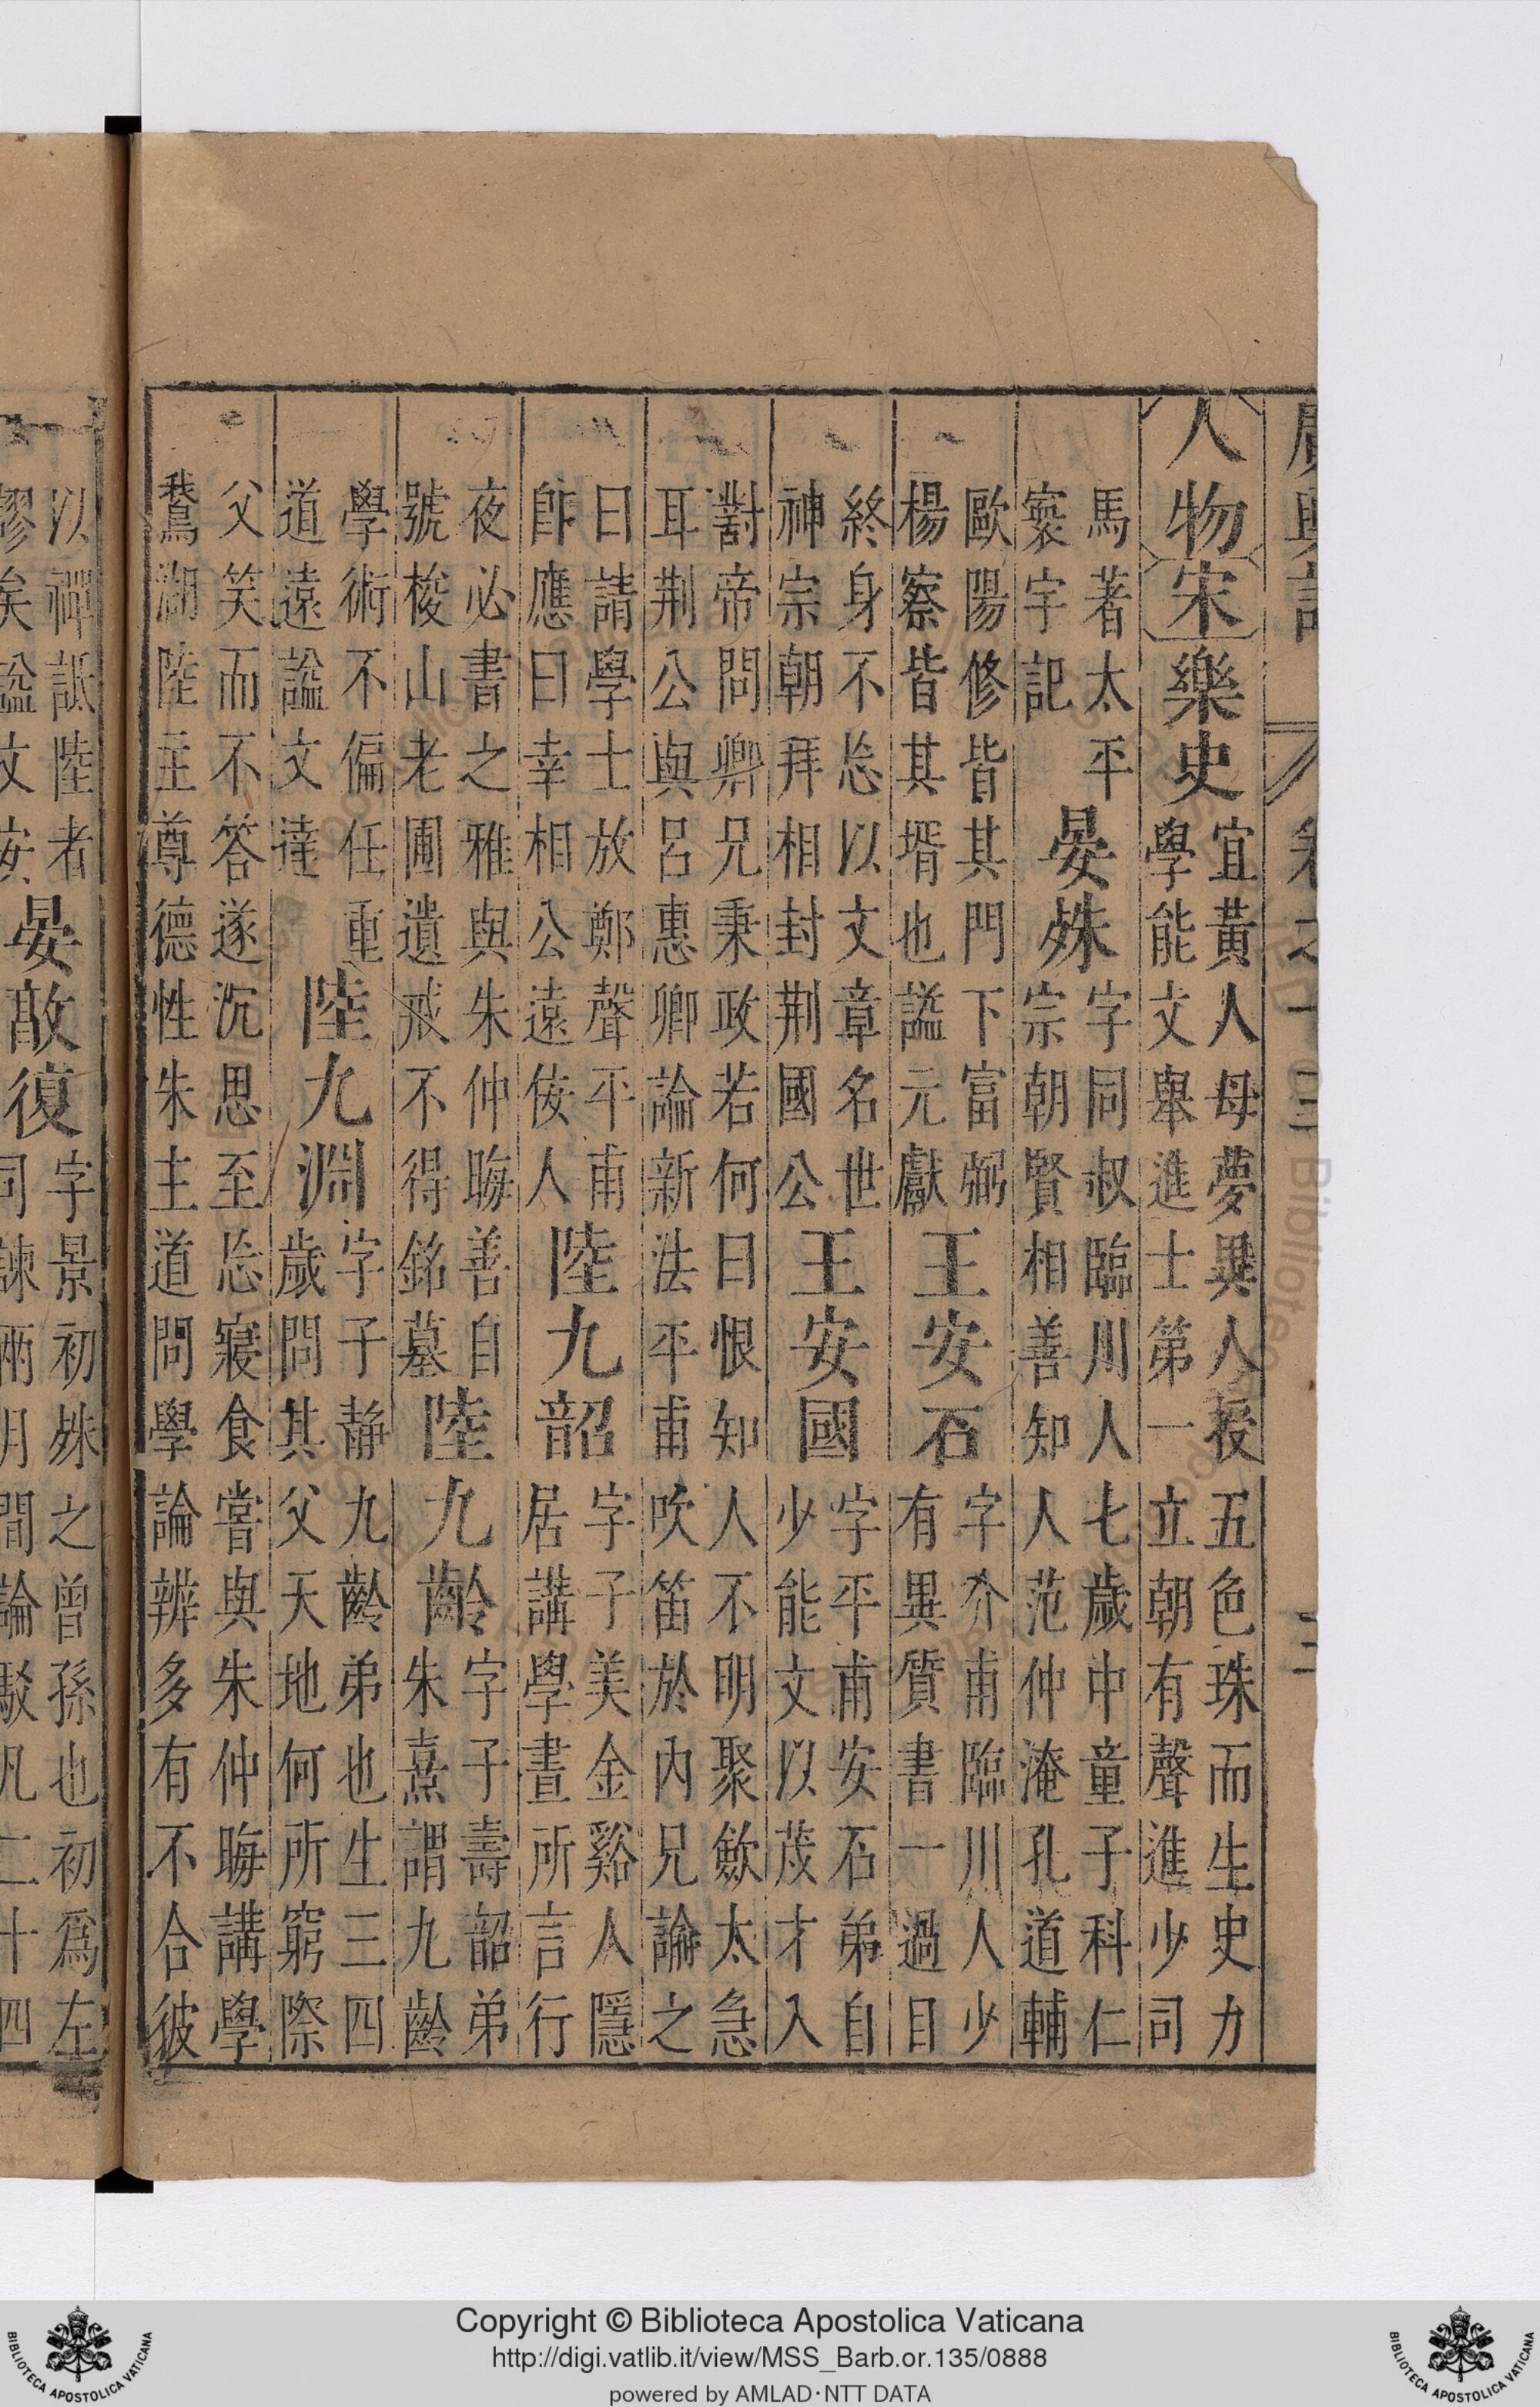 廣輿記 卷之十三
人物 宋 樂史 宜黃人母夢異人授五色珠而生史力
學能文舉進士第一立朝有聲進少司
馬著太平
寰宇記
晏殊 字同叔臨川人七歲中童子科仁
宗朝賢相善知人范仲淹孔道輔
歐陽修皆其門下富弼
楊察皆其壻也謚元獻
王安石 字介甫臨川人少
有異質書一過目
終身不忘以文章名世
神宗朝拜相封荆國公
王安國 字平甫安石弟自
少能文以茂才入
對帝問卿兄秉政若何曰恨知人不明聚歛太急
耳荆公與呂惠卿論新法平甫吹笛於內兄論之
曰請學士放鄭聲平甫
卽應曰幸相公遠佞人
陸九韶 字子美金谿人隱
居講學晝所言行
夜必書之雅與朱仲晦善自
號梭山老圃遺戒不得銘墓
陸九齡 字子壽韶弟
朱熹謂九齡
學術不偏任重
道遠謚文達
陸九淵 字子静九齡弟也生三四
歲問其父天地何所窮際
父笑而不答遂沉思至忘寢食嘗與朱仲晦講學
鵞湖陸主尊德性朱主道問學論辨多有不合彼
以禪詆陸者
謬矣謚文安
晏敦復 字景初殊之曾孫也初爲左
司諫兩月間論駁凡二十四
Copyright © Biblioteca Apostolica Vaticana
http://digi.vatlib.it/view/MSS_Barb.or.135/0888
powered by AMLAD·NTT DATA
BIBLIOTECA APOSTOLICA VATICANA
BIBLIOTECA APOSTOLICA VATICANA